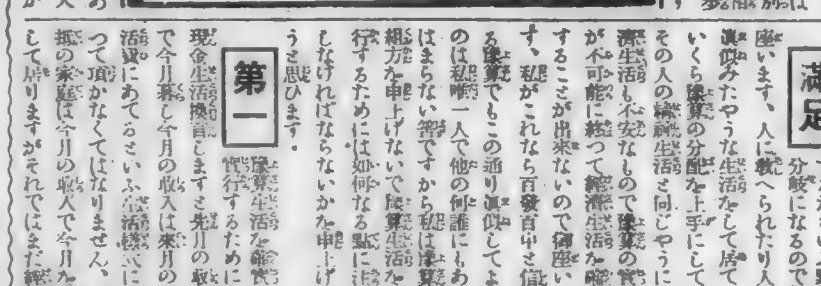 満足
分岐になるので
座います、人に敎へられたり人
眞似みたやうな生活をして居て
いくら豫算の分配を上手にして
その人の精神生活と同じやうに
濟生活も不安なもので豫算の實
が不可能に終つて經濟生活を確
することが出來ないので御座い
ず、私がこれなら百發百中と信
る豫算でもこの通り眞似してよ
のは私唯一人で他の何誰にもあ
はまらない筈ですから私は豫算
組方を申上げないで豫算生活を
行するためには如何なる點に注
しなければならないかを申上げ
うと思ひます。
第一
豫算生活を確實
實行するために
現金生活換言しますと先月の收
で今月暮し今月の收入は來月の
活費にあてるといふ生活樣式に
つて頂かなくてはなりません、
抵の家庭は今月の收入で今月を
して居りますがそれではまだ經